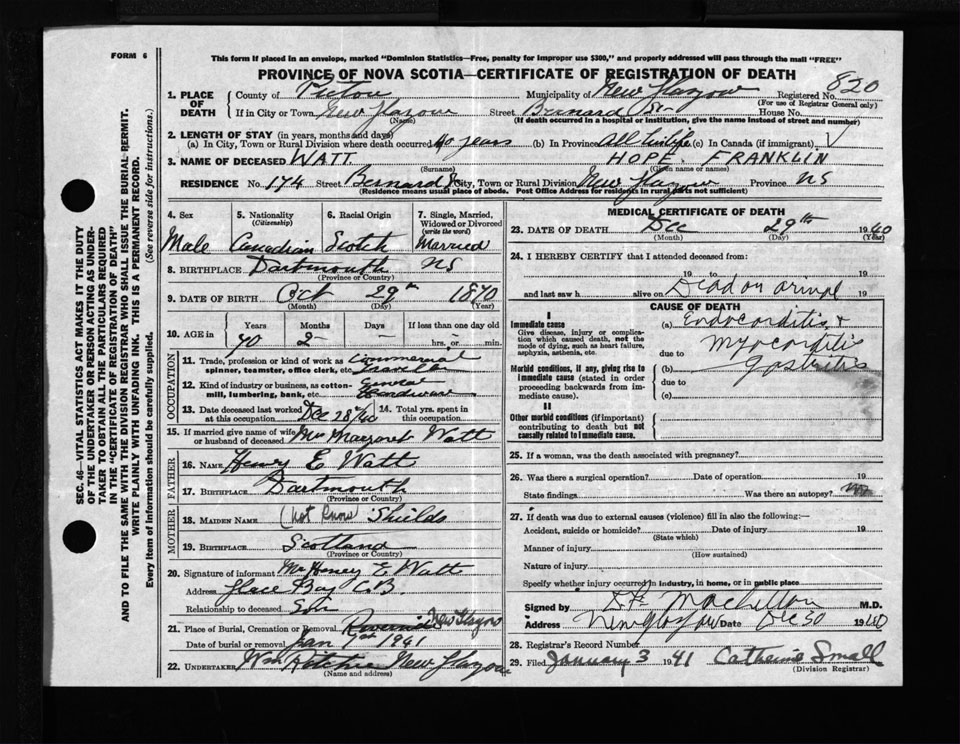 FORM 6
This form if placed in an envelope, marked "Dominion Statistics—Free, penalty for improper use $300," and properly addressed will pass through the mail "FREE"
PROVINCE OF NOVA SCOTIA—CERTIFICATE OF REGISTRATION OF DEATH
820
1. PLACE OF DEATH
County of Pictou Municipality of New Glasgow Registered No.
(For use of Registrar General only)
If in City or Town New Glasgow Street Bernard St House No.
(Name) (If death occurred in a hospital or institution, give the name instead of street and number)
2. LENGTH OF STAY (in years, months and days)
(a) In City, Town or Rural Division where death occurred 40 years (b) In Province All his life (c) In Canada (if immigrant)
3. NAME OF DECEASED WATT. HOPE. FRANKLIN
(Surname) (Given name or names)
RESIDENCE No. 174 Street Bernard St City, Town or Rural Division New Glasgow Province NS
(Residence means usual place of abode. Post Office Address for residents in rural parts not sufficient)
4. Sex 5. Nationality (Citizenship) 6. Racial Origin 7. Single, Married, Widowed or Divorced (write the word)
Male Canadian Scotch Married
8. BIRTHPLACE Dartmouth NS
(Province or Country)
9. DATE OF BIRTH Oct 29th 1870
(Month) (Day) (Year)
10. AGE in Years Months Days If less than one day old
70 2 – hrs. or min.
OCCUPATION
11. Trade, profession or kind of work as spinner, teamster, office clerk, etc. Commercial Traveller
12. Kind of industry or business, as cotton-mill, lumbering, bank, etc. General Hardware
13. Date deceased last worked at this occupation Dec 28/40 14. Total yrs. spent in this occupation
15. If married give name of wife or husband of deceased Mrs Margaret Watt
FATHER
16. NAME Henry E Watt
17. BIRTHPLACE Dartmouth
(Province or Country)
MOTHER
18. MAIDEN NAME (Not Known) Shields
19. BIRTHPLACE Scotland
(Province or Country)
20. Signature of informant Mr Henry E Watt
Address Glace Bay C.B.
Relationship to deceased Son
21. Place of Burial, Cremation or Removal Riverside New Glasgow
Date of burial or removal Jan 1st 1941
22. UNDERTAKER Wm Ritchie New Glasgow
(Name and address)
MEDICAL CERTIFICATE OF DEATH
23. DATE OF DEATH Dec 29th 1940
(Month) (Day) (Year)
24. I HEREBY CERTIFY that I attended deceased from:
19 to 19
and last saw h alive on Dead on arrival 19
CAUSE OF DEATH
I
Immediate cause
Give disease, injury or complication which caused death, not the mode of dying, such as heart failure, asphyxia, asthenia, etc.
(a) Endocorditis &
due to Myocorditis
Morbid conditions, if any, giving rise to immediate cause (stated in order proceeding backwards from immediate cause).
(b) Gastritis
due to
(c)
II
Other morbid conditions (if important) contributing to death but not causally related to immediate cause.
25. If a woman, was the death associated with pregnancy?
26. Was there a surgical operation? Date of operation 19
State findings Was there an autopsy? no
27. If death was due to external causes (violence) fill in also the following:—
Accident, suicide or homicide? Date of injury 19
(State which)
Manner of injury
(How sustained)
Nature of injury
Specify whether injury occurred in industry, in home, or in public place
Signed by M.D.
Address New Glasgow Dec 30 1940
28. Registrar's Record Number
29. Filed January 3 1941 Catharine Small
(Division Registrar)
SEC. 46—VITAL STATISTICS ACT MAKES IT THE DUTY
OF THE UNDERTAKER OR PERSON ACTING AS UNDER-
TAKER TO OBTAIN ALL THE PARTICULARS REQUIRED
IN THE "CERTIFICATE OF REGISTRATION OF DEATH"
AND TO FILE THE SAME WITH THE DIVISION REGISTRAR WHO SHALL ISSUE THE BURIAL PERMIT.
WRITE PLAINLY WITH UNFADING INK. THIS IS A PERMANENT RECORD.
Every item of information should be carefully supplied. (See reverse side for instructions.)